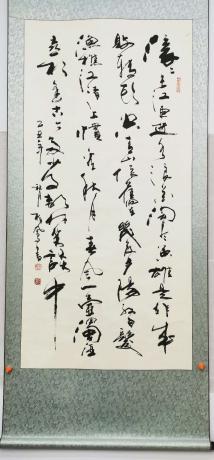 滚〻长江东逝水浪花淘尽英雄是非成
败转头空青山依旧在几度夕阳红白髮
渔樵江渚上惯看秋月春风一壶浊酒
喜相逢古今多少事都付笑谈中